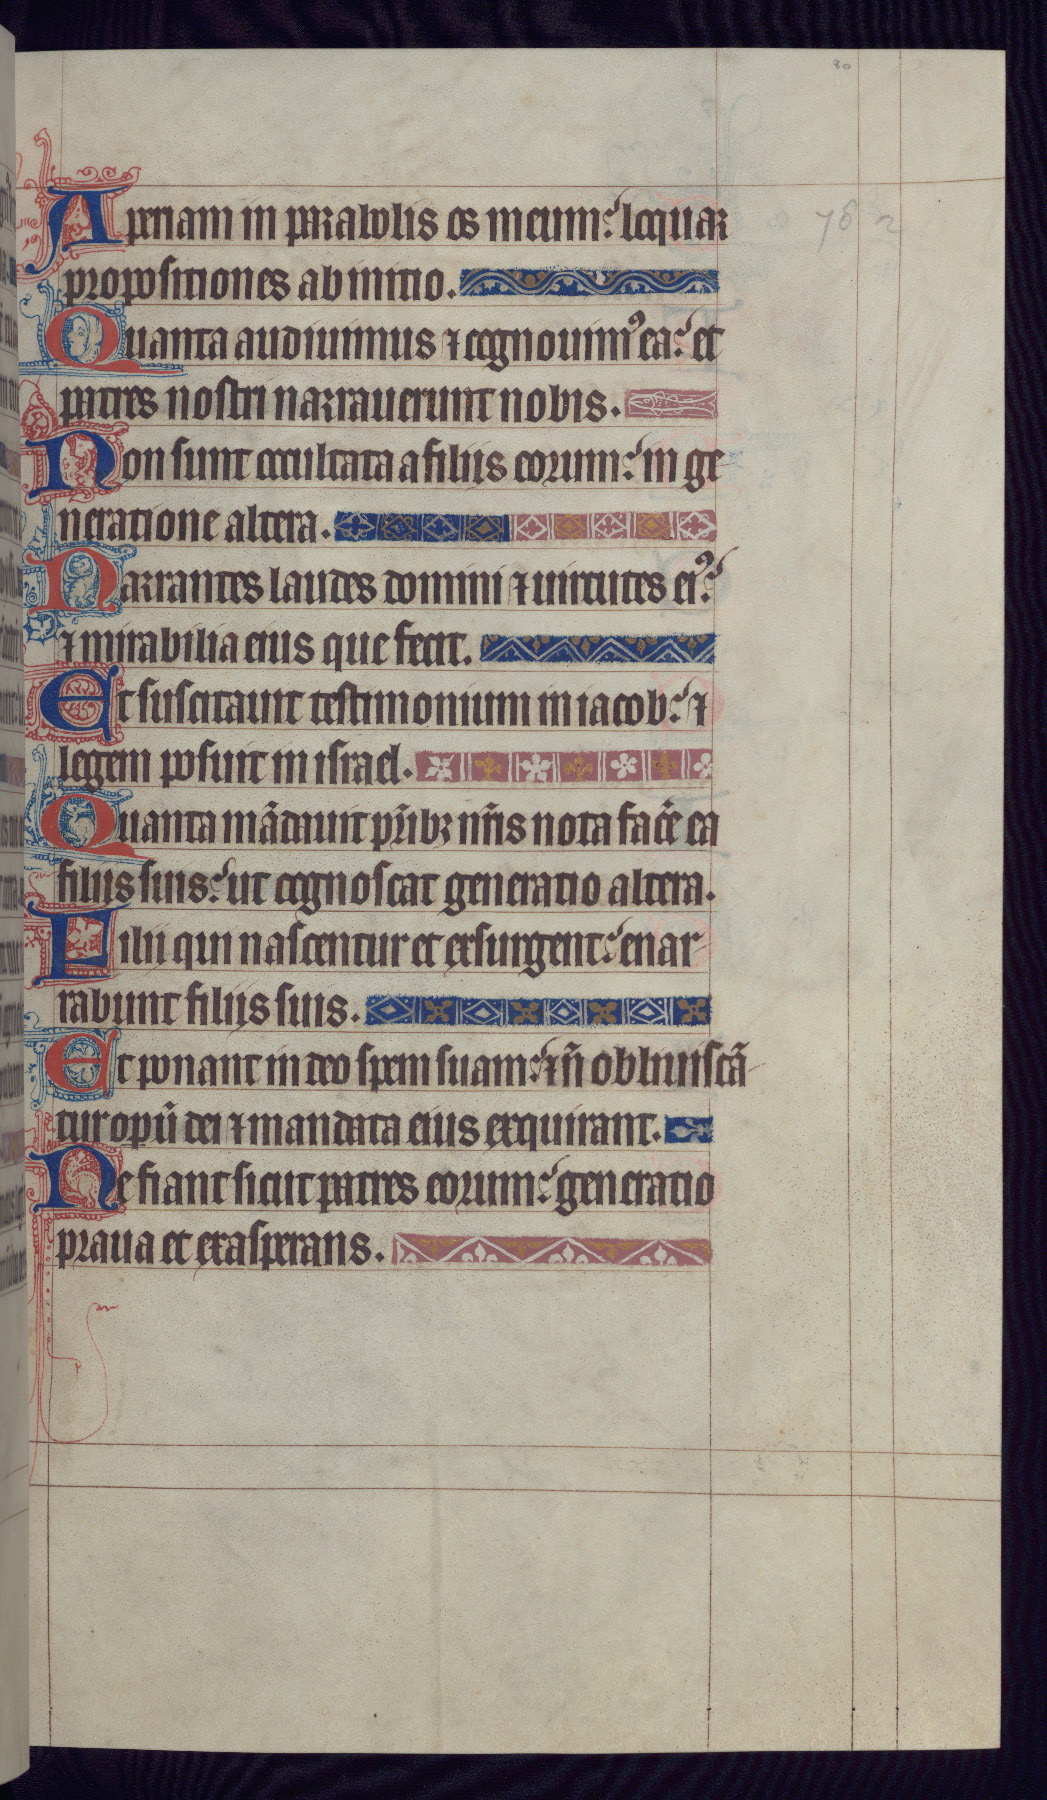 80
78 2
Aperiam in parabolis os meum: loquar
propositiones ab initio.
Quanta audiuimus ⁊ cognouimꝰ ea: et
patres nostri narrauerunt nobis.
Non sunt occultata a filijs eorum: in ge
neratione altera.
Narrantes laudes domini ⁊ uirtutes eiꝰ:
⁊ mirabilia eius que fecit.
Et suscitauit testimonium in iacob: ⁊
legem posuit in israel.
Quanta mādauit pr̄ibꝫ nr̄is nota facē ea
filijs suis: ut cognoscat generatio altera.
Filii qui nascentur et exsurgent: enar-
rabunt filijs suis.
Et ponant in deo spem suam: ⁊ n̄ obliuiscā-
tur operū dei ⁊ mandata eius exquirant.
Ne fiant sicut patres eorum: generatio
praua et exasperans.